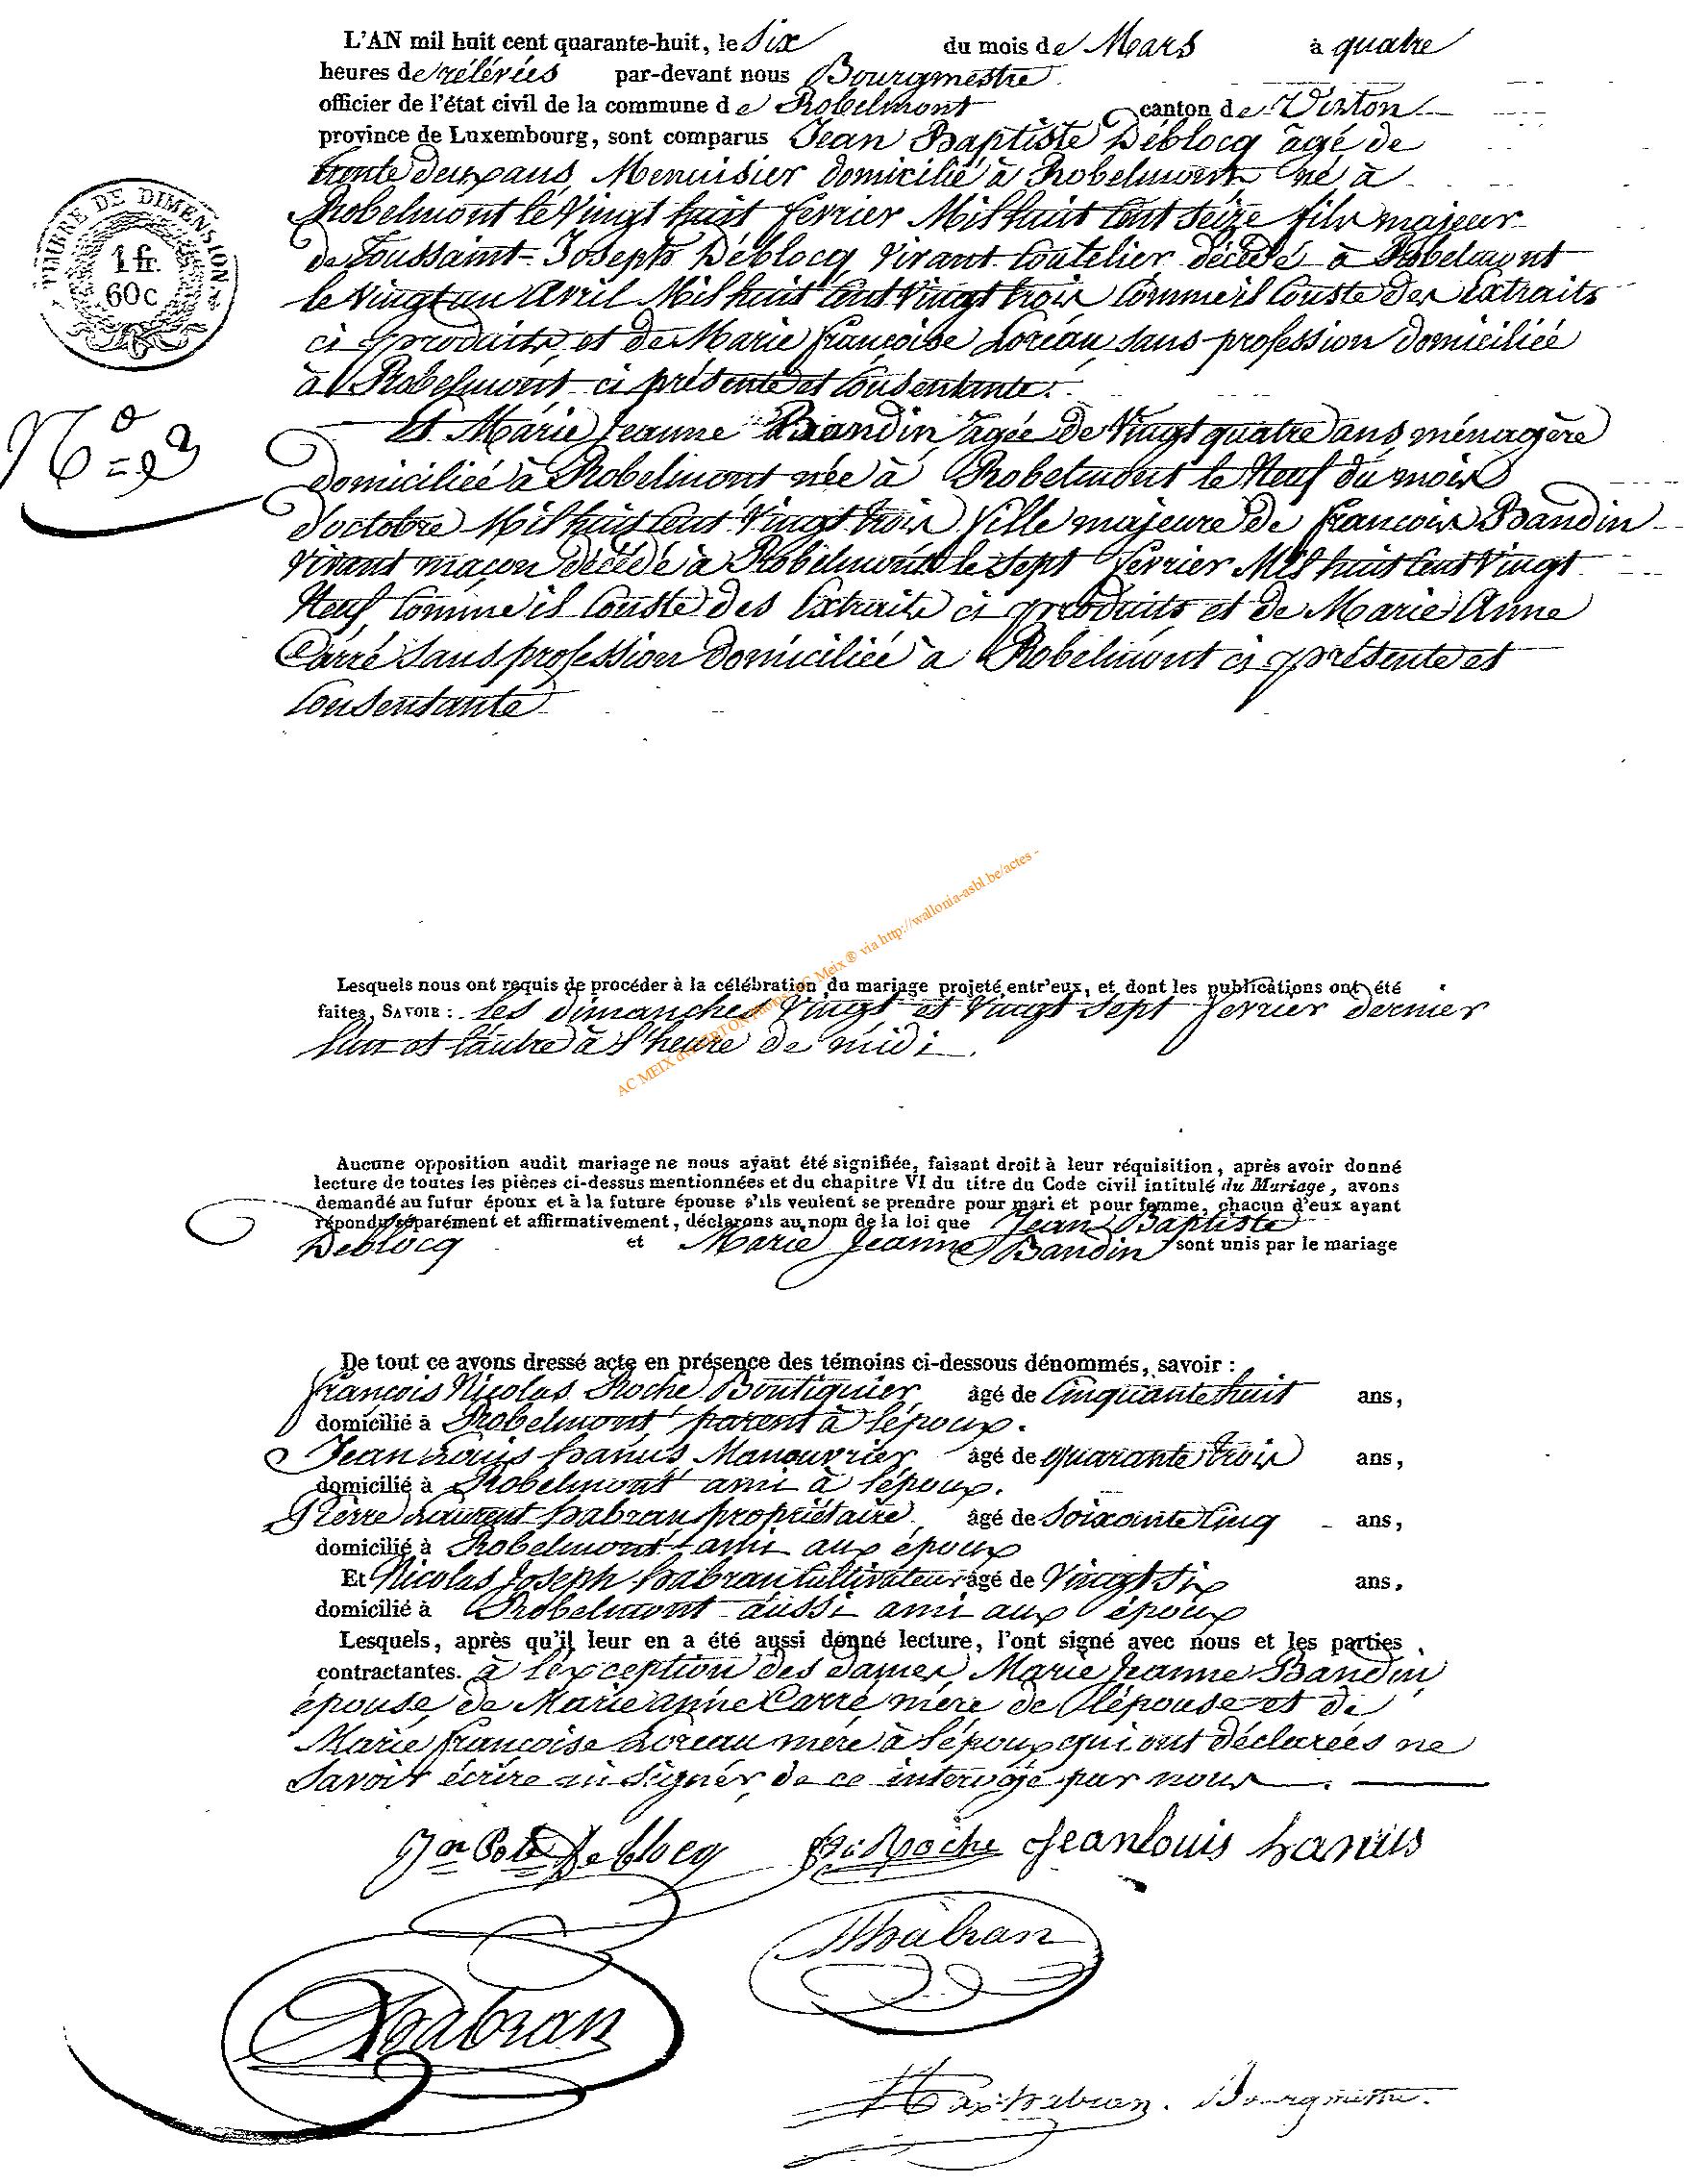 L'AN mil huit cent quarante-huit, le Six du mois de Mars à quatre
heures de rélévées par-devant nous Bourgmestre
officier de l'état civil de la commune de Robelmont canton de Virton
province de Luxembourg, sont comparus Jean Baptiste Déblocq âgé de
trente deux ans, Menuisier domicilié à Robelmont né à
Robelmont le Vingt huit fevrier Mil huit Cent Seize fils majeur
de Toussaint-Joseph Déblocq, vivant Coutelier décédé à Robelmont
le vingt un Avril Mil huit Cent Vingt trois Comme il Conste des Extraits
ci produits, et de Marie françoise Loreau sans profession domiciliée
à Robelmont ci présente et Consentante.
Et Marie Jeanne Bandin agée de Vingt quatre ans ménagère
N° = 2
domiciliée à Robelmont née à Robelmont le Neuf du mois
d'octobre Mil huit Cent Vingt trois fille majeure de françois Bandin
vivant maçon décédé à Robelmont le sept fevrier Mil huit Cent Vingt
Neuf, Comme il Conste des Extraits ci produits et de Marie Anne
Carré sans profession domiciliée a Robelmont ci présente et
Consentante
TIMBRE DE DIMENSION
1 fr.
60 c
Lesquels nous ont requis de procéder à la célébration du mariage projeté entr'eux, et dont les publications ont été
faites, SAVOIR : les dimanches Vingt et Vingt Sept fevrier dernier
l'un et l'autre à l'heure de midi.
AC MEIX dvt VIRTON AC Meix ® via http://wallonia-asbl.be/actes -
Aucune opposition audit mariage ne nous ayant été signifiée, faisant droit à leur réquisition, après avoir donné
lecture de toutes les pièces ci-dessus mentionnées et du chapitre VI du titre du Code civil intitulé du Mariage, avons
demandé au futur époux et à la future épouse s'ils veulent se prendre pour mari et pour femme, chacun d'eux ayant
répondu séparément et affirmativement, déclarons au nom de la loi que Jean Baptiste
Deblocq et Marie Jeanne Bandin sont unis par le mariage
De tout ce avons dressé acte en présence des témoins ci-dessous dénommés, savoir :
françois Nicolas Roche Boutiquier, âgé de Cinquante huit ans,
domicilié à Robelmont, parent à l'époux.
Jean Louis hanus Manouvrier âgé de quarante trois ans,
domicilié à Robelmont ami à l'époux.
Pierre Laurent habran propriétaire âgé de Soixante Cinq ans,
domicilié à Robelmont ami aux époux
Et Nicolas Joseph habran Cultivateur âgé de Vingt Six ans,
domicilié à Robelmont aussi ami aux époux
Lesquels, après qu'il leur en a été aussi donné lecture, l'ont signé avec nous et les parties
contractantes. à l'exception des dames, Marie Jeanne Bandin
épouse, de Marie anne Carré mère de l'épouse et de
Marie françoise Loreau mère à l'époux qui ont déclarées ne
Savoir écrire ni signer, de ce intervojé par nous.
Jn Bte Deblocq fs: Roche Jeanlouis hanus
habran
habran
habran. Bourgmestre.